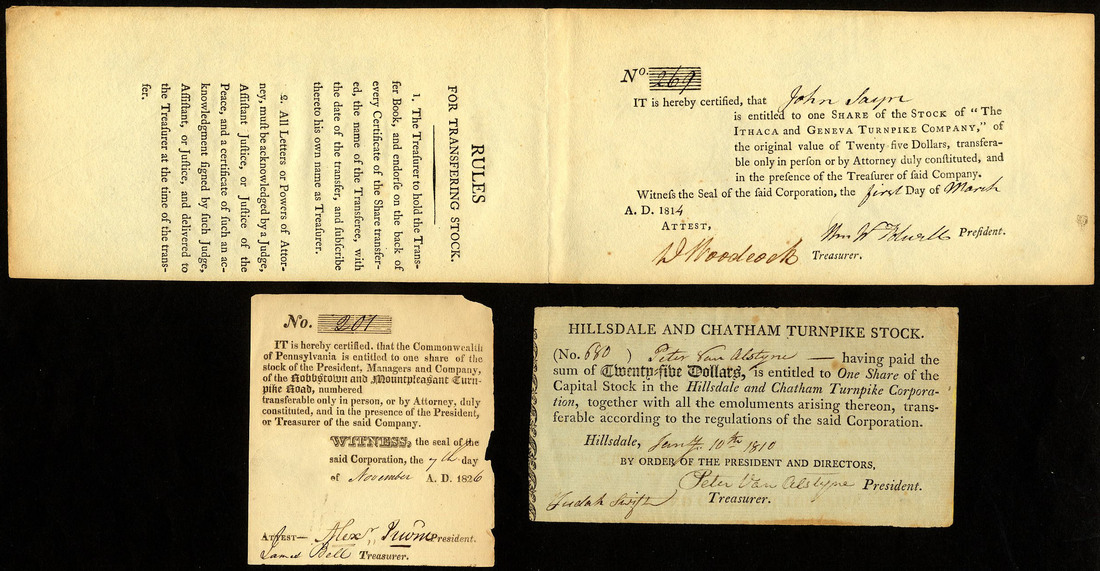 RULES
FOR TRANSFERING STOCK.
1. The Treaſurer to hold the Trans-
fer Book, and endorſe on the back of
every Certificate of the Share transfer-
ed, the name of the Transferee, with
the date of the transfer, and ſubſcribe
thereto his own name as Treaſurer.
2. All Letters or Powers of Attor-
ney, muſt be acknowledged by a Judge,
Aſſiſtant Juſtice, or Juſtice of the
Peace, and a certificate of ſuch an ac-
knowledgment ſigned by ſuch Judge,
Aſſiſtant, or Juſtice, and delivered to
the Treaſurer at the time of the trans-
fer.
No. 269
IT is hereby certified, that John Sayre
is entitled to one SHARE of the STOCK of "THE
ITHACA AND GENEVA TURNPIKE COMPANY," of
the original value of Twenty-five Dollars, transfera-
ble only in perſon or by Attorney duly conſtituted, and
in the preſence of the Treaſurer of ſaid Company.
Witneſs the Seal of the ſaid Corporation, the first Day of March
A. D. 1814
ATTEST,
Wm W President.
D Woodcock Treasurer.
No. 201
IT is hereby certified, that the Commonwealth
of Pennsylvania is entitled to one share of the
stock of the President, Managers and Company,
of the Robbstown and Mountpleasant Turn-
pike Road, numbered
transferable only in person, or by Attorney, duly
constituted, and in the presence of the President,
or Treasurer of the said Company.
WITNESS, the seal of the
said Corporation, the 7th day
of November A. D. 1826
ATTEST— Alexr President.
James Bell Treasurer.
HILLSDALE AND CHATHAM TURNPIKE STOCK.
(No. 680 ) Peter Van Alstyne — having paid the
sum of Twenty-five Dollars, is entitled to One Share of the
Capital Stock in the Hillsdale and Chatham Turnpike Corpora-
tion, together with all the emoluments arising thereon, trans-
ferable according to the regulations of the said Corporation.
Hillsdale, Jany 10th 1810
BY ORDER OF THE PRESIDENT AND DIRECTORS,
Peter Van Alstyne President.
Judah Swift Treasurer.